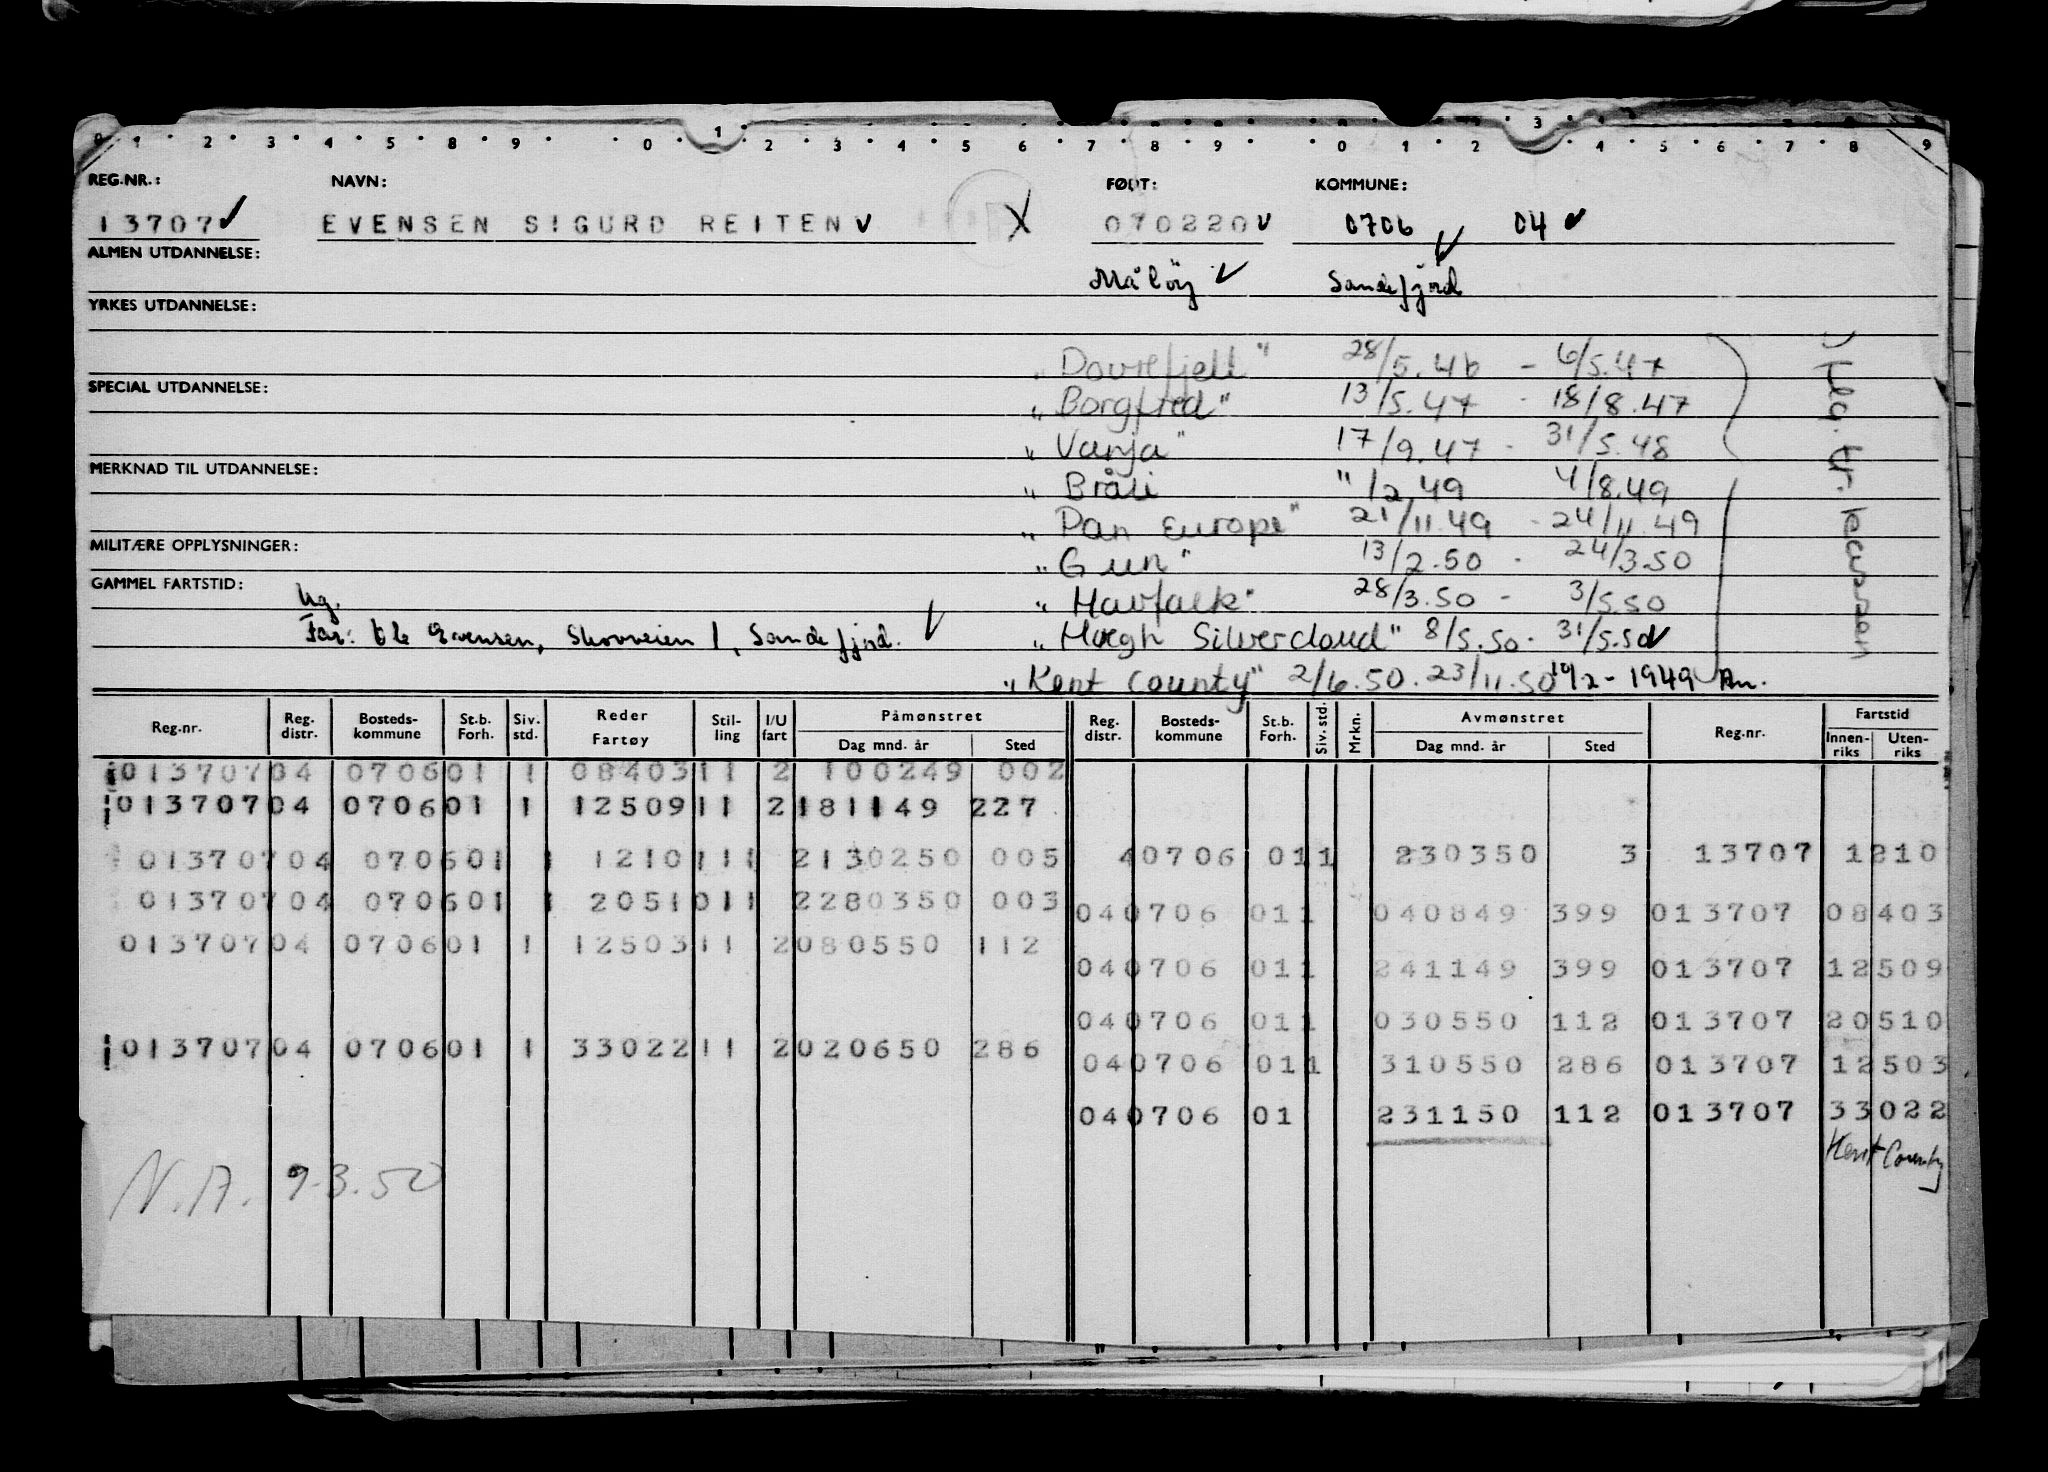 0 1 2 3 4 5 8 9 0 1 2 3 4 5 6 7 8 9 0 1 2 3 4 5 6 7 8 9
REG.NR.: NAVN: FØDT: KOMMUNE:
13707 EVENSEN SIGURD REITEN X 070220 0706 04
ALMEN UTDANNELSE:
Måløy Sandefjord
YRKES UTDANNELSE:
"Dovrefjell" 28/5.46 - 6/5.47
SPECIAL UTDANNELSE:
"Borgfred" 13/5.47 - 18/8.47
"Vanja" 17/9.47 - 31/5.48
MERKNAD TIL UTDANNELSE:
"Bråli "/2.49 4/8.49
"Pan Europe" 21/11.49 - 24/11.49
MILITÆRE OPPLYSNINGER:
"Gun" 13/2.50 - 24/3.50
GAMMEL FARTSTID:
Ug.
"Havfalk" 28/3.50 - 3/5.50
Far: Evensen, Skovveien 1, Sandefjord.
"Høegh Silvercloud" 8/5.50 - 31/5.50
"Kent County" 2/6.50 - 23/11.50 10/2 - 1949 An.
Reg.nr. Reg. distr. Bosteds-kommune St.b. Forh. Siv. std. Reder Fartøy Stil-ling I/U fart Påmønstret Dag mnd. år Sted Reg. distr. Bosteds-kommune St.b. Forh. Siv. std. Mrkn. Avmønstret Dag mnd. år Sted Reg.nr. Fartstid Innen-riks Uten-riks
013707 04 0706 01 1 08403 11 2 100249 002
013707 04 0706 01 1 12509 11 2 181149 227
013707 04 0706 01 1 1210 111 2 130250 005 4 0706 01 1 230350 3 13707 1210
013707 04 0706 01 1 20510 11 2 280350 003
04 0706 01 1 040849 399 013707 08403
013707 04 0706 01 1 12503 11 2 080550 112
04 0706 01 1 241149 399 013707 12509
04 0706 01 1 030550 112 013707 20510
013707 04 0706 01 1 33022 11 2 020650 286
04 0706 01 1 310550 286 013707 12503
04 0706 01 231150 112 013707 33022
Kent County
N.A. 9.3.50